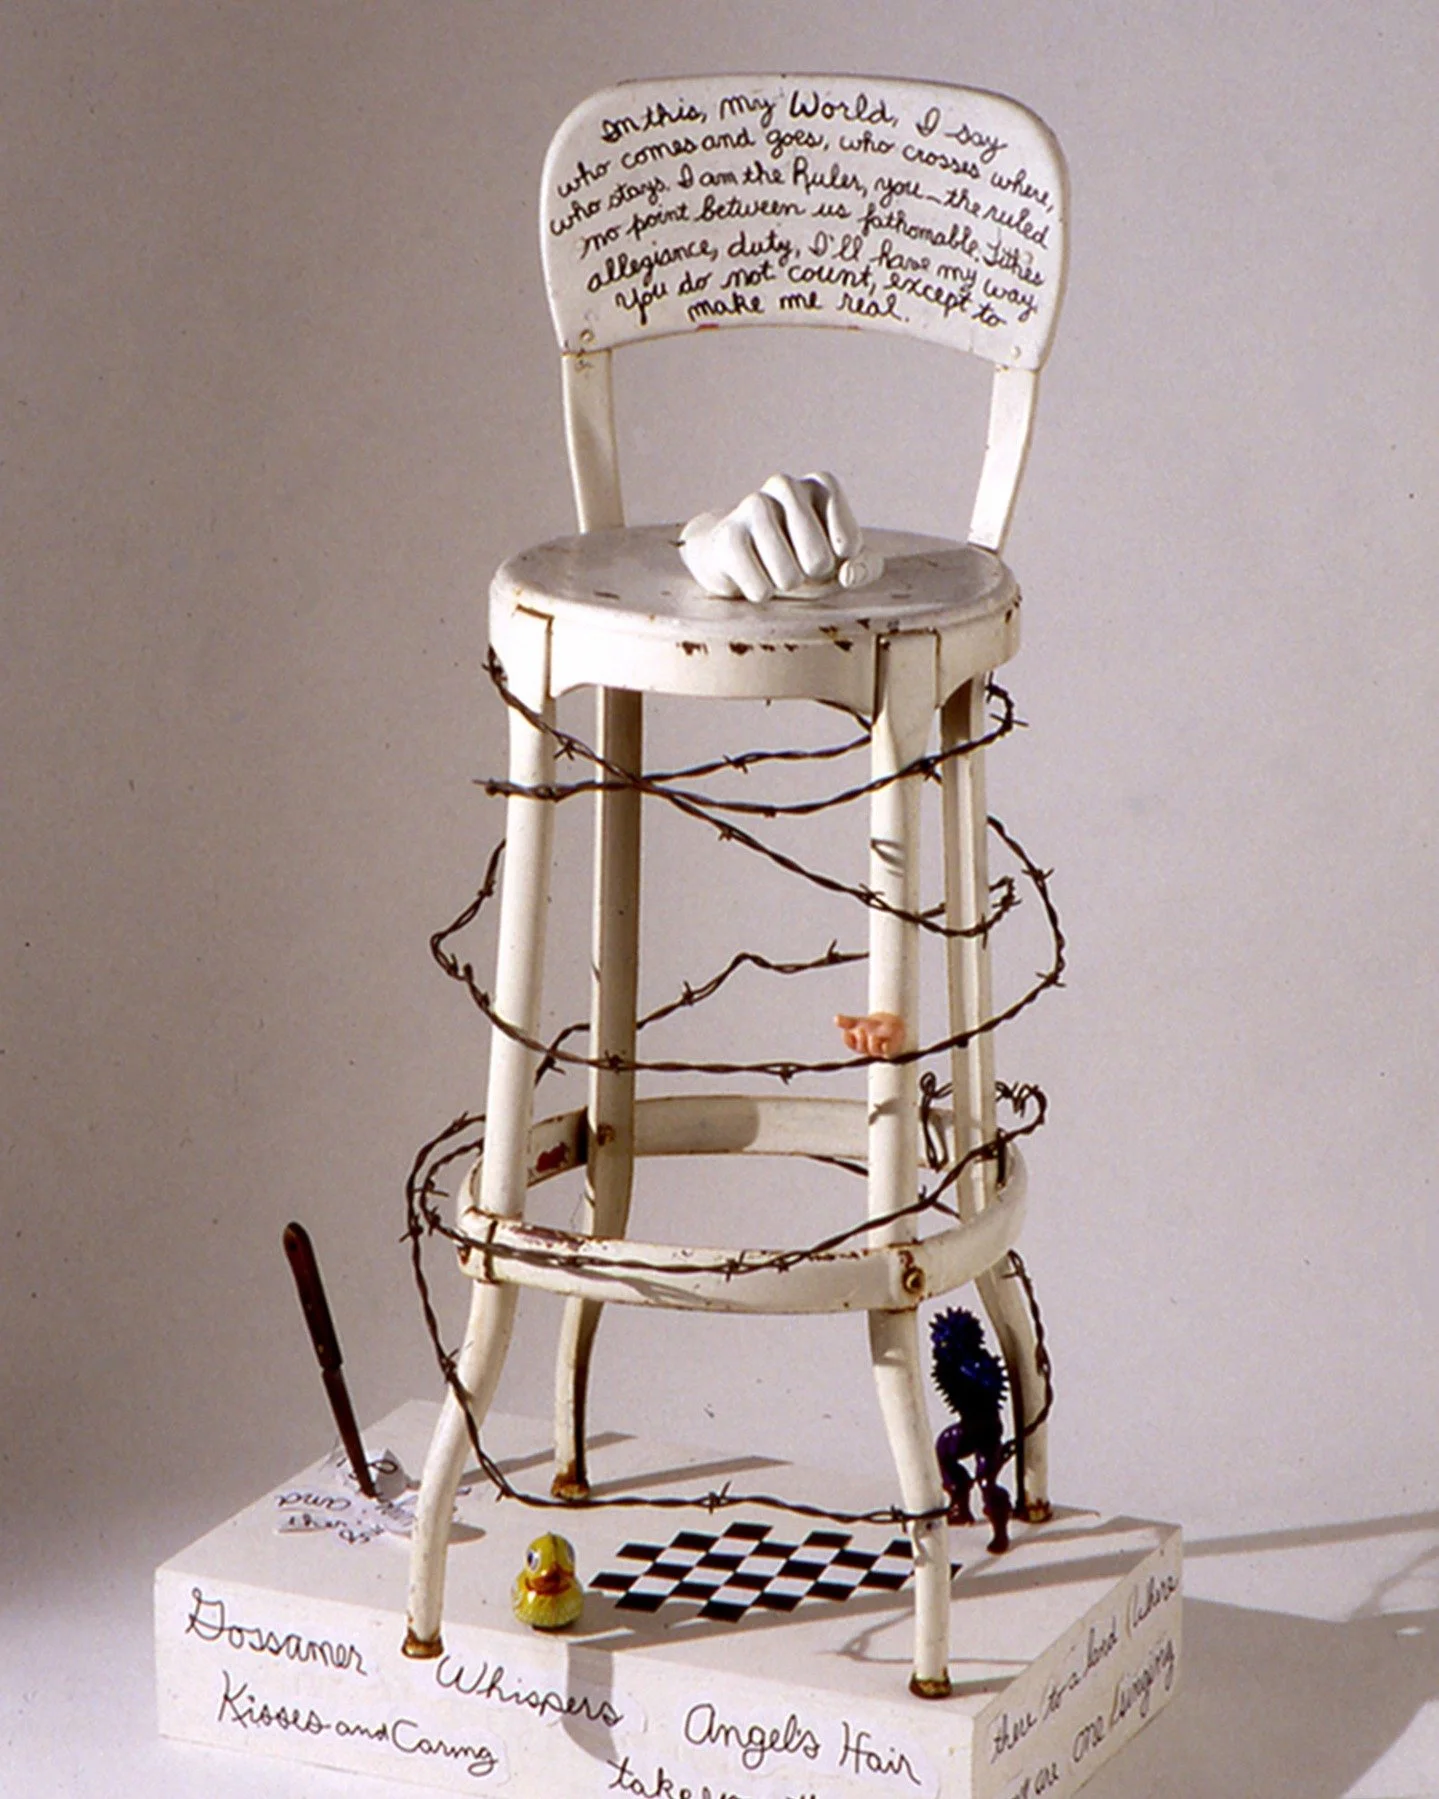 In this, my World, I say
who comes and goes, who crosses where,
who stays. I am the Ruler, you—the ruled
no point between us fathomable. Tithes
allegiance, duty, I'll have my way.
You do not count, except to
make me real.
and
Gossamer Whispers Angel's Hair
Kisses and Caring
take
there to a land where
are one singing